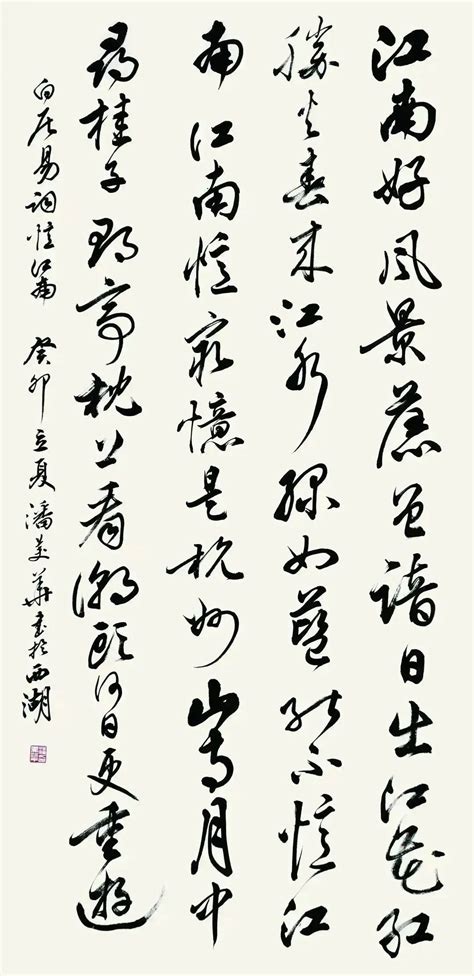 江南好风景旧曾谙日出江花红
胜火春来江水绿如蓝能不忆江
南江南忆最憶是杭州山寺月中
寻桂子郡亭枕上看潮头何日更重游
白居易词忆江南 癸卯立夏潘美华书于西湖